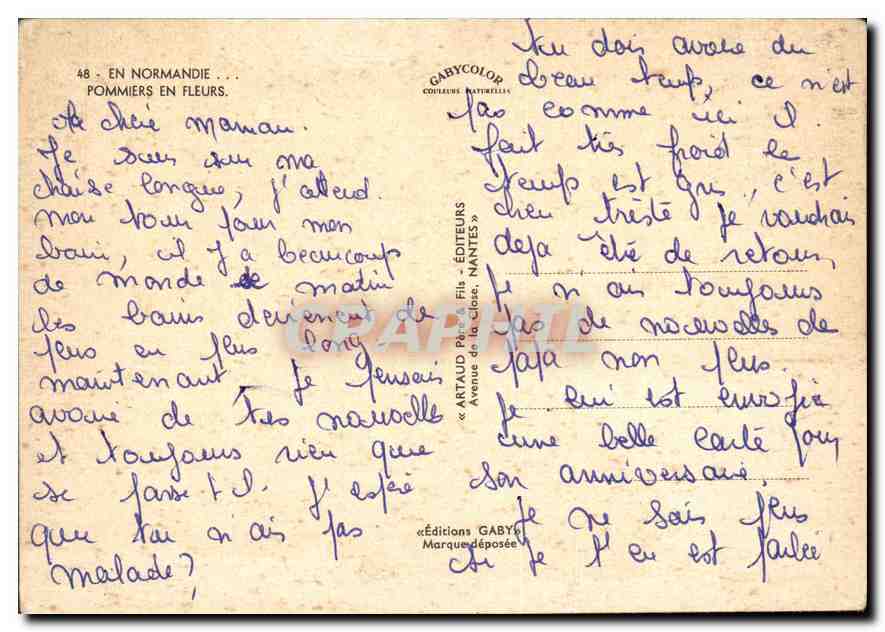 48 - EN NORMANDIE ...
POMMIERS EN FLEURS.
Ma chère maman.
Je suis sur ma
chaise longue, j'attend
mon tour pour mon
bain, il y a beaucoup
de monde le matin
les bains deviennent de
plus en plus long
maintenant. Je pensais
avoir de tes nouvelles
et toujours rien que
se passe t'il. J'espère
que tu n'ais pas
malade?
GABYCOLOR
COULEURS NATURELLES
« ARTAUD Père & Fils - ÉDITEURS
Avenue de la Close. NANTES »
«Éditions GABY»
Marque déposée
CPAPHIL
Tu dois avoir du
beau temp, ce n'est
pas comme ici il
fait très froid le
temp est gris, c'est
bien triste je voudrais
deja été de retour,
Je n'ais toujours
pas de nouvelles de
papa non plus.
Je lui est envoyé
une belle carte pour
son anniversaire.
Je ne sais plus
si je t'en est parlée